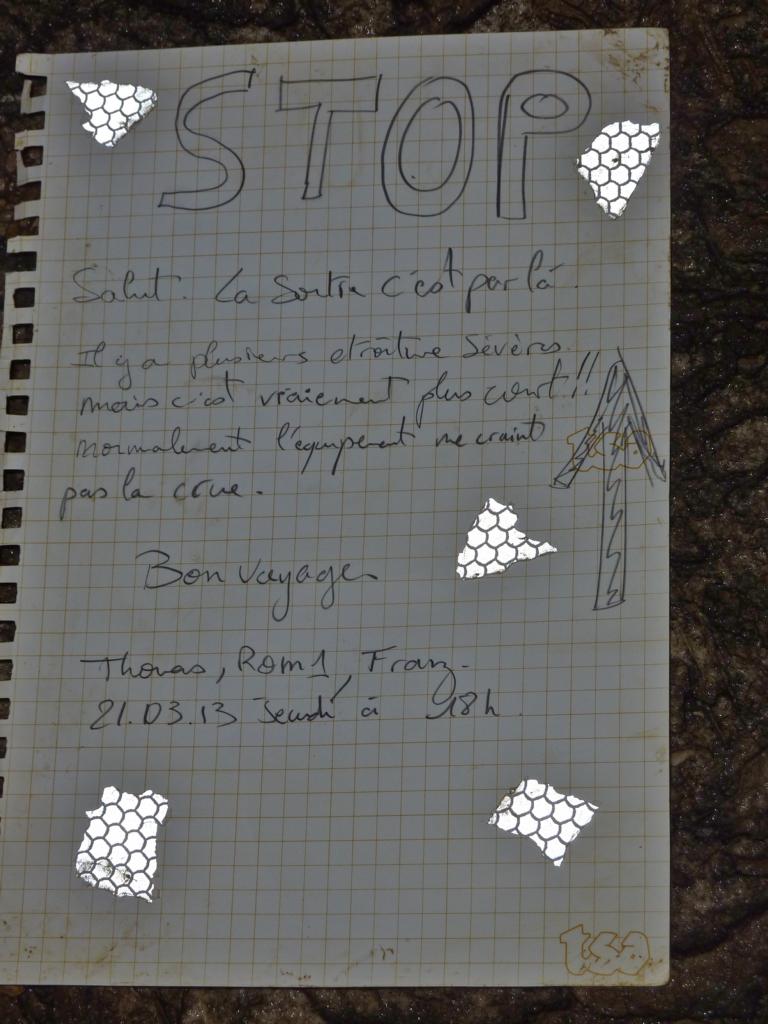 STOP
Salut. La Sortie c'est par là.
Il y a plusieurs etroiture Sévères
mais c'est vraiement plus court!!
normalement l'équipement ne craint
pas la crue.
Bon voyage
Thomas, Rom1, Franz.
21.03.13 Jeudi à 18h.
tsa